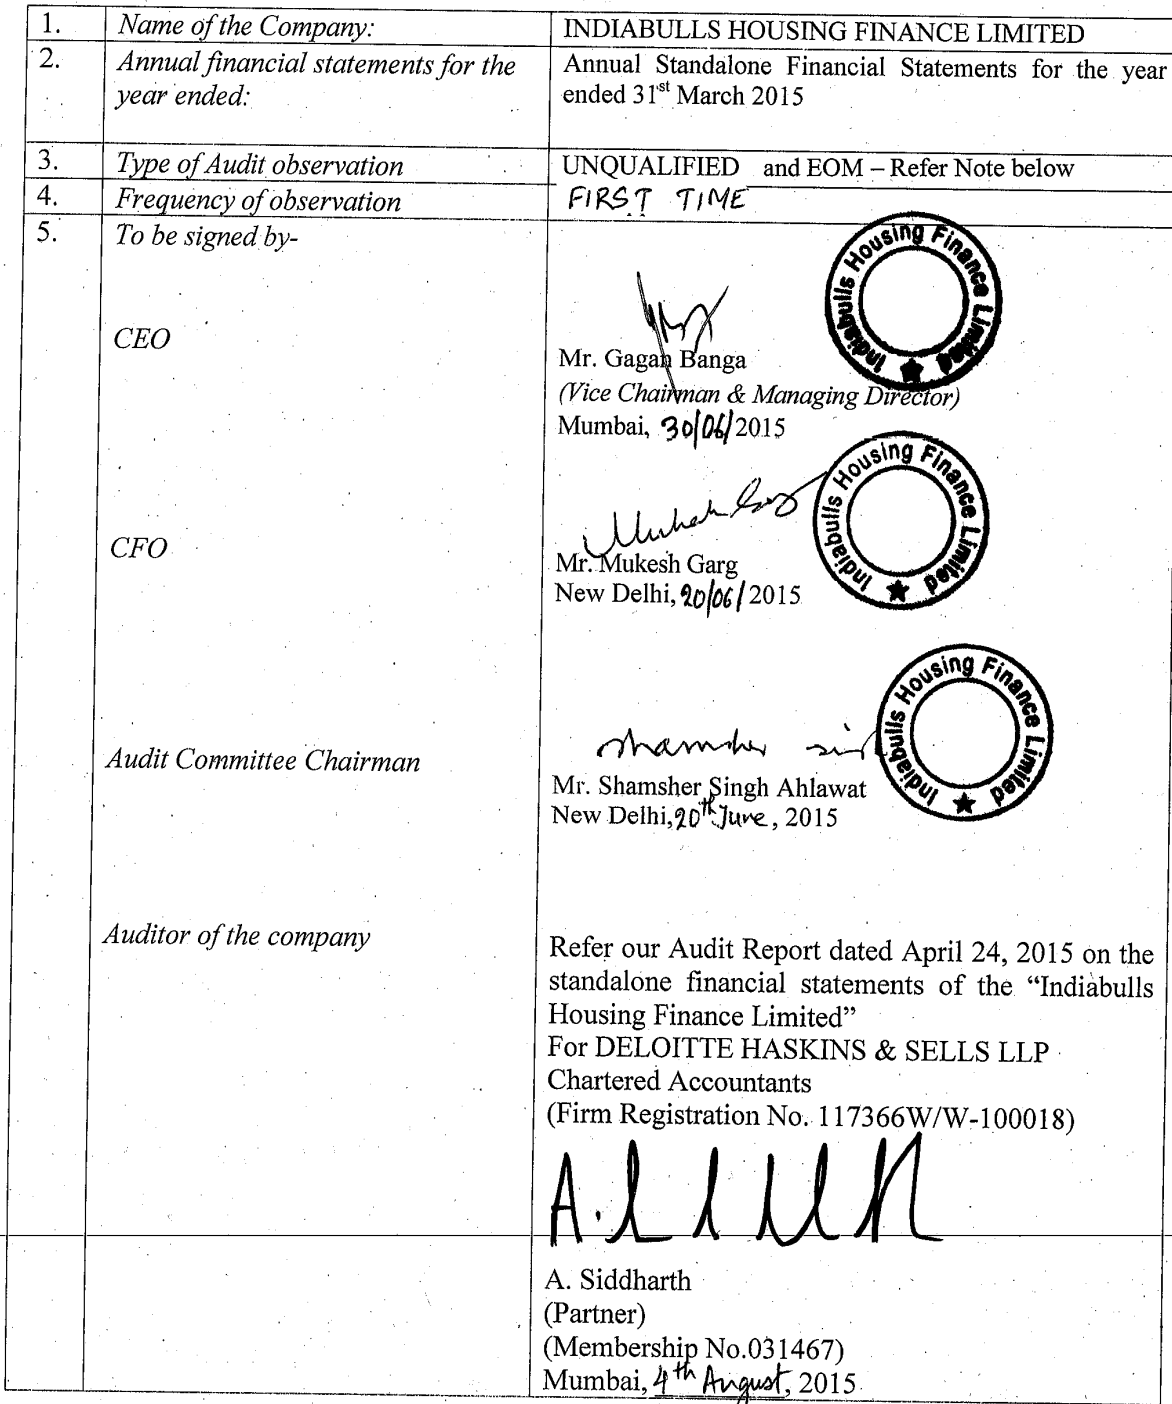 1. Name of the Company: INDIABULLS HOUSING FINANCE LIMITED
2. Annual financial statements for the Annual Standalone Financial Statements for the year
year ended: ended 31st March 2015
3. Type of Audit observation UNQUALIFIED and EOM – Refer Note below
4. Frequency of observation FIRST TIME
5. To be signed by-
Indiabulls Housing Finance Limited ★
CEO
Mr. Gagan Banga
(Vice Chairman & Managing Director)
Mumbai, 30/06/2015
Indiabulls Housing Finance Limited ★
CFO
Mr. Mukesh Garg
New Delhi, 20/06/2015
Indiabulls Housing Finance Limited ★
Audit Committee Chairman
Mr. Shamsher Singh Ahlawat
New Delhi, 20th June, 2015
Auditor of the company
Refer our Audit Report dated April 24, 2015 on the
standalone financial statements of the “Indiabulls
Housing Finance Limited”
For DELOITTE HASKINS & SELLS LLP
Chartered Accountants
(Firm Registration No. 117366W/W-100018)
A. Siddharth
(Partner)
(Membership No.031467)
Mumbai, 4th August, 2015